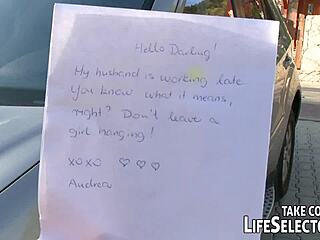 Hello Darling!
My husband is working late
You know what it means,
right? Don't leave a
girl hanging!
xoxo ♡ ♡ ♡
Andrea
TAKE CO
LIFESELECTO